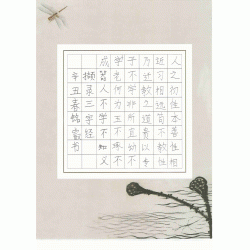 人之初性本善性相
近习相远苟不教性
乃迁教之道贵以专
子不学非所宜幼不
学老何为玉不琢不
成器人不学不知义
录三字经
辛丑春铭书